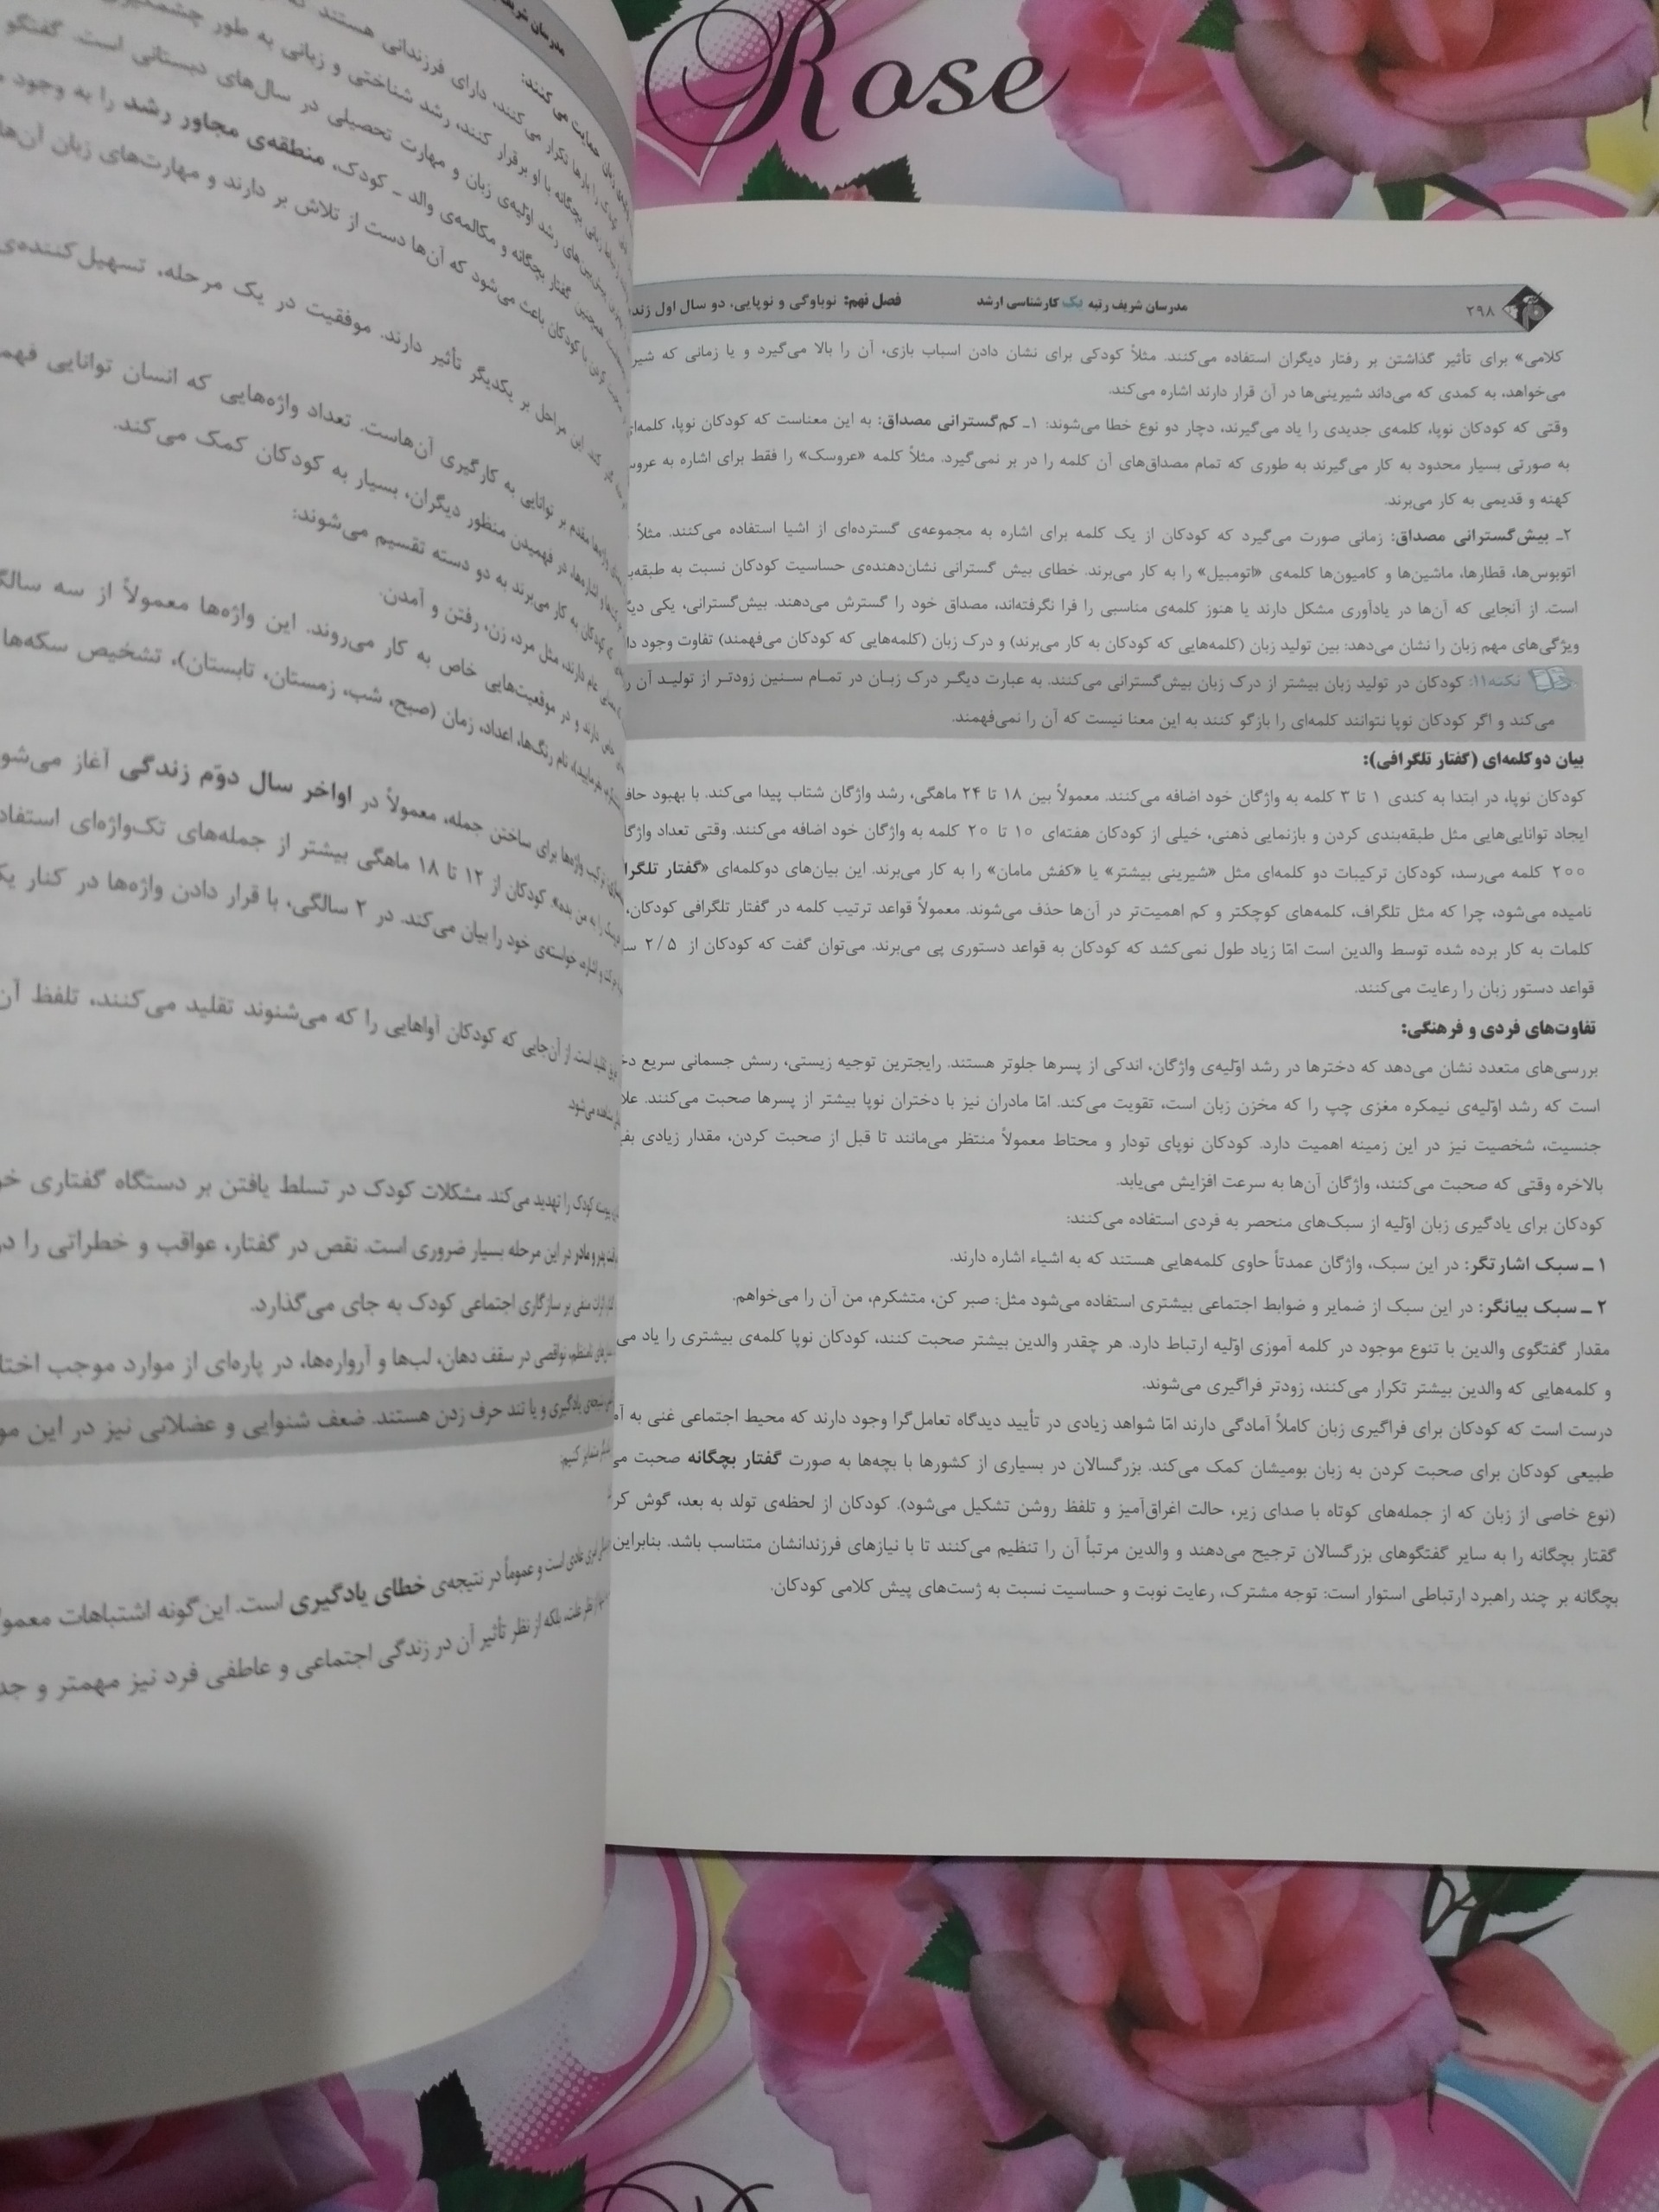 Rose
۲۹۸ مدرسان شریف رتبه یک کارشناسی ارشد فصل نهم: نوباوگی و نوپایی، دو سال اول
کلامی» برای تأثیر گذاشتن بر رفتار دیگران استفاده می‌کنند. مثلاً کودکی برای نشان دادن اسباب بازی، آن را بالا می‌گیرد و یا زمانی که
می‌خواهد، به کمدی که می‌داند شیرینی‌ها در آن قرار دارند اشاره می‌کند.
وقتی که کودکان نوپا، کلمه‌ی جدیدی را یاد می‌گیرند، دچار دو نوع خطا می‌شوند: ۱ـ کم‌گسترانی مصداق: به این معناست که کودکان نوپا،
به صورتی بسیار محدود به کار می‌گیرند به طوری که تمام مصداق‌های آن کلمه را در بر نمی‌گیرد. مثلاً کلمه «عروسک» را فقط برای اشاره به
کهنه و قدیمی به کار می‌برند.
۲ـ بیش‌گسترانی مصداق: زمانی صورت می‌گیرد که کودکان از یک کلمه برای اشاره به مجموعه‌ی گسترده‌ای از اشیا استفاده می‌کنند. مثلاً
اتوبوس‌ها، قطارها، ماشین‌ها و کامیون‌ها کلمه‌ی «اتومبیل» را به کار می‌برند. خطای بیش گسترانی نشان‌دهنده‌ی حساسیت کودکان نسبت به
است. از آنجایی که آن‌ها در یادآوری مشکل دارند یا هنوز کلمه‌ی مناسبی را فرا نگرفته‌اند، مصداق خود را گسترش می‌دهند. بیش‌گسترانی، یکی
ویژگی‌های مهم زبان را نشان می‌دهد: بین تولید زبان (کلمه‌هایی که کودکان به کار می‌برند) و درک زبان (کلمه‌هایی که کودکان می‌فهمند) تفاوت وجود
نکته۱۱: کودکان در تولید زبان بیشتر از درک زبان بیش‌گسترانی می‌کنند. به عبارت دیگر درک زبان در تمام سنین زودتر از تولید آن
می‌کند و اگر کودکان نوپا نتوانند کلمه‌ای را بازگو کنند به این معنا نیست که آن را نمی‌فهمند.
بیان دوکلمه‌ای (گفتار تلگرافی):
کودکان نوپا، در ابتدا به کندی ۱ تا ۳ کلمه به واژگان خود اضافه می‌کنند. معمولاً بین ۱۸ تا ۲۴ ماهگی، رشد واژگان شتاب پیدا می‌کند. با بهبود
ایجاد توانایی‌هایی مثل طبقه‌بندی کردن و بازنمایی ذهنی، خیلی از کودکان هفته‌ای ۱۰ تا ۲۰ کلمه به واژگان خود اضافه می‌کنند. وقتی تعداد
۲۰۰ کلمه می‌رسد، کودکان ترکیبات دو کلمه‌ای مثل «شیرینی بیشتر» یا «کفش مامان» را به کار می‌برند. این بیان‌های دوکلمه‌ای «گفتار
نامیده می‌شود، چرا که مثل تلگراف، کلمه‌های کوچکتر و کم اهمیت‌تر در آن‌ها حذف می‌شوند. معمولاً قواعد ترتیب کلمه در گفتار تلگرافی کودکان،
کلمات به کار برده شده توسط والدین است امّا زیاد طول نمی‌کشد که کودکان به قواعد دستوری پی می‌برند. می‌توان گفت که کودکان از ۲/۵
قواعد دستور زبان را رعایت می‌کنند.
تفاوت‌های فردی و فرهنگی:
بررسی‌های متعدد نشان می‌دهد که دخترها در رشد اوّلیه‌ی واژگان، اندکی از پسرها جلوتر هستند. رایجترین توجیه زیستی، رسش جسمانی سریع
است که رشد اوّلیه‌ی نیمکره مغزی چپ را که مخزن زبان است، تقویت می‌کند. امّا مادران نیز با دختران نوپا بیشتر از پسرها صحبت می‌کنند.
جنسیت، شخصیت نیز در این زمینه اهمیت دارد. کودکان نوپای تودار و محتاط معمولاً منتظر می‌مانند تا قبل از صحبت کردن، مقدار زیادی
بالاخره وقتی که صحبت می‌کنند، واژگان آن‌ها به سرعت افزایش می‌یابد.
کودکان برای یادگیری زبان اوّلیه از سبک‌های منحصر به فردی استفاده می‌کنند:
۱ ـ سبک اشارتگر: در این سبک، واژگان عمدتاً حاوی کلمه‌هایی هستند که به اشیاء اشاره دارند.
۲ ـ سبک بیانگر: در این سبک از ضمایر و ضوابط اجتماعی بیشتری استفاده می‌شود مثل: صبر کن، متشکرم، من آن را می‌خواهم.
مقدار گفتگوی والدین با تنوع موجود در کلمه آموزی اوّلیه ارتباط دارد. هر چقدر والدین بیشتر صحبت کنند، کودکان نوپا کلمه‌ی بیشتری را یاد
و کلمه‌هایی که والدین بیشتر تکرار می‌کنند، زودتر فراگیری می‌شوند.
درست است که کودکان برای فراگیری زبان کاملاً آمادگی دارند امّا شواهد زیادی در تأیید دیدگاه تعامل‌گرا وجود دارند که محیط اجتماعی غنی به
طبیعی کودکان برای صحبت کردن به زبان بومیشان کمک می‌کند. بزرگسالان در بسیاری از کشورها با بچه‌ها به صورت گفتار بچگانه صحبت
(نوع خاصی از زبان که از جمله‌های کوتاه با صدای زیر، حالت اغراق‌آمیز و تلفظ روشن تشکیل می‌شود). کودکان از لحظه‌ی تولد به بعد، گوش
گفتار بچگانه را به سایر گفتگوهای بزرگسالان ترجیح می‌دهند و والدین مرتباً آن را تنظیم می‌کنند تا با نیازهای فرزندانشان متناسب باشد. بنابراین
بچگانه بر چند راهبرد ارتباطی استوار است: توجه مشترک، رعایت نوبت و حساسیت نسبت به ژست‌های پیش کلامی کودکان.
مدرسان
حمایت می‌کنند:
را بارها تکرار می‌کنند، دارای فرزندانی هستند
بچگانه با او برقرار کنند، رشد شناختی و زبانی به طور
رشد اولیه‌ی زبان و مهارت تحصیلی در سال‌های دبستانی است. گفتگو
گفتار بچگانه و مکالمه‌ی والد ـ کودک، منطقه‌ی مجاور رشد را به وجود
کودکان باعث می‌شود که آن‌ها دست از تلاش بر دارند و مهارت‌های زبان آن‌ها
این مراحل بر یکدیگر تأثیر دارند. موفقیت در یک مرحله، تسهیل‌کننده‌ی
مقدم بر توانایی به کارگیری آن‌هاست. تعداد واژه‌هایی که انسان توانایی
در فهمیدن منظور دیگران، بسیار به کودکان کمک می‌کند.
کودکان به کار می‌برند به دو دسته تقسیم می‌شوند:
عام دارند، مثل مرد، زن، رفتن و آمدن.
خاص دارند و در موقعیت‌هایی خاص به کار می‌روند. این واژه‌ها معمولاً از سه
نام رنگ‌ها، اعداد، زمان (صبح، شب، زمستان، تابستان)، تشخیص سکه‌ها
ترکیب واژه‌ها برای ساختن جمله، معمولاً در اواخر سال دوّم زندگی آغاز
را به من بده». کودکان از ۱۲ تا ۱۸ ماهگی بیشتر از جمله‌های تک‌واژه‌ای
خواسته‌ی خود را بیان می‌کند. در ۲ سالگی، با قرار دادن واژه‌ها در کنار
تقلید است. از آن‌جایی که کودکان آواهایی را که می‌شنوند تقلید می‌کنند، تلفظ
مشاهده می‌شود.
کودک را تهدید می‌کند. مشکلات کودک در تسلط یافتن بر دستگاه گفتاری
پدر و مادر در این مرحله بسیار ضروری است. نقص در گفتار، عواقب و خطراتی را
اثرات منفی بر سازگاری اجتماعی کودک به جای می‌گذارد.
نواقصی در سقف دهان، لب‌ها و آرواره‌ها، در پاره‌ای از موارد موجب
یادگیری و یا تند حرف زدن هستند. ضعف شنوایی و عضلانی نیز در این
عادی است و عموماً در نتیجه‌ی خطای یادگیری است. این‌گونه اشتباهات
بلکه از نظر تأثیر آن در زندگی اجتماعی و عاطفی فرد نیز مهمتر و